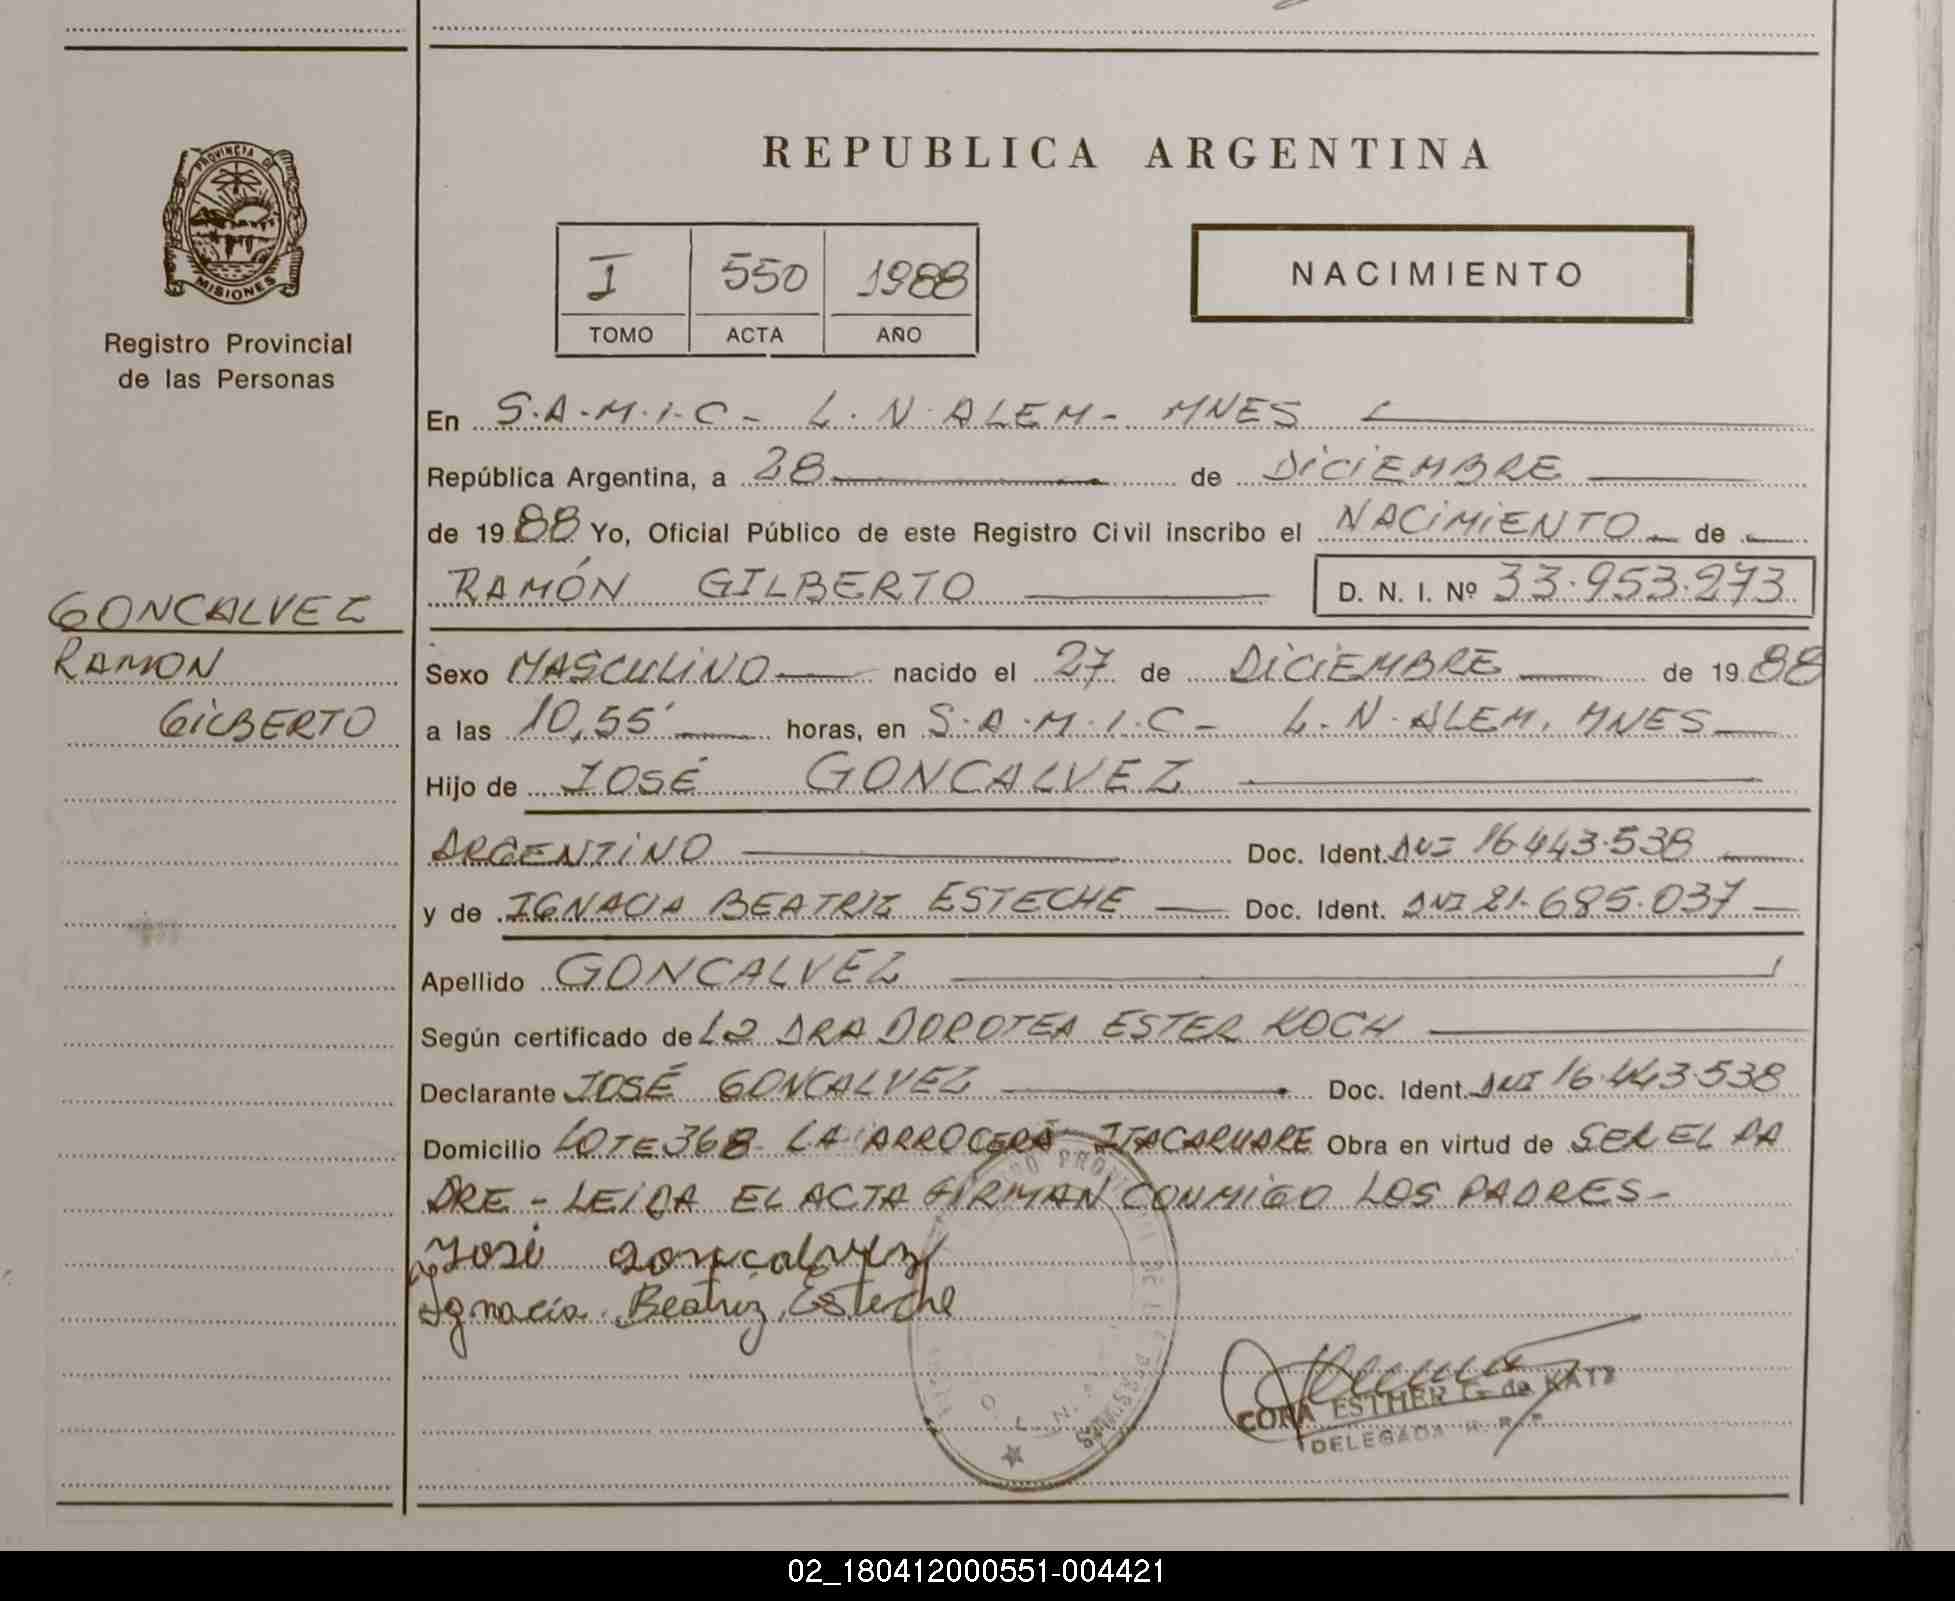 REPUBLICA ARGENTINA
PROVINCIA DE
MISIONES
Registro Provincial
de las Personas
GONCALVEZ
RAMON
GILBERTO
I 550 1988
TOMO ACTA AÑO
NACIMIENTO
En S.A.M.I.C- L.N.ALEM- MNES
República Argentina, a 28 de DICIEMBRE
de 1988 Yo, Oficial Público de este Registro Civil inscribo el NACIMIENTO de
RAMÓN GILBERTO D. N. I. Nº 33.953.273
Sexo MASCULINO nacido el 27 de DICIEMBRE de 1988
a las 10,55' horas, en S.A.M.I.C- L.N.ALEM, MNES
Hijo de JOSÉ GONCALVEZ
ARGENTINO Doc. Ident. DNI 16.443.538
y de IGNACIA BEATRIZ ESTECHE Doc. Ident. DNI 21.685.037
Apellido GONCALVEZ
Según certificado de La DRA DOROTEA ESTER KOCH
Declarante JOSÉ GONCALVEZ Doc. Ident. DNI 16.443.538
Domicilio LOTE 368 LA ARROCERA ITACARUARE Obra en virtud de SER EL PA
DRE - LEIDA EL ACTA FIRMAN CONMIGO LOS PADRES-
José gonçalvez
Ignacia Beatriz Esteche
CORA ESTHER G de KATZ
DELEGADA R. P. P.
02_180412000551-004421